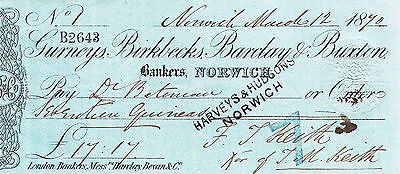 No. 1 Norwich March 12 1870
B2643
Gurneys, Birkbecks, Barclay & Buxton,
Bankers, NORWICH.
Pay Dr Bateman or Order
Seventeen Guineas
HARVEYS & HUDSONS
NORWICH
£17:17
F. T. Keith
for T. M. Keith
London Bankers, Messrs. Barclay, Bevan & Co.